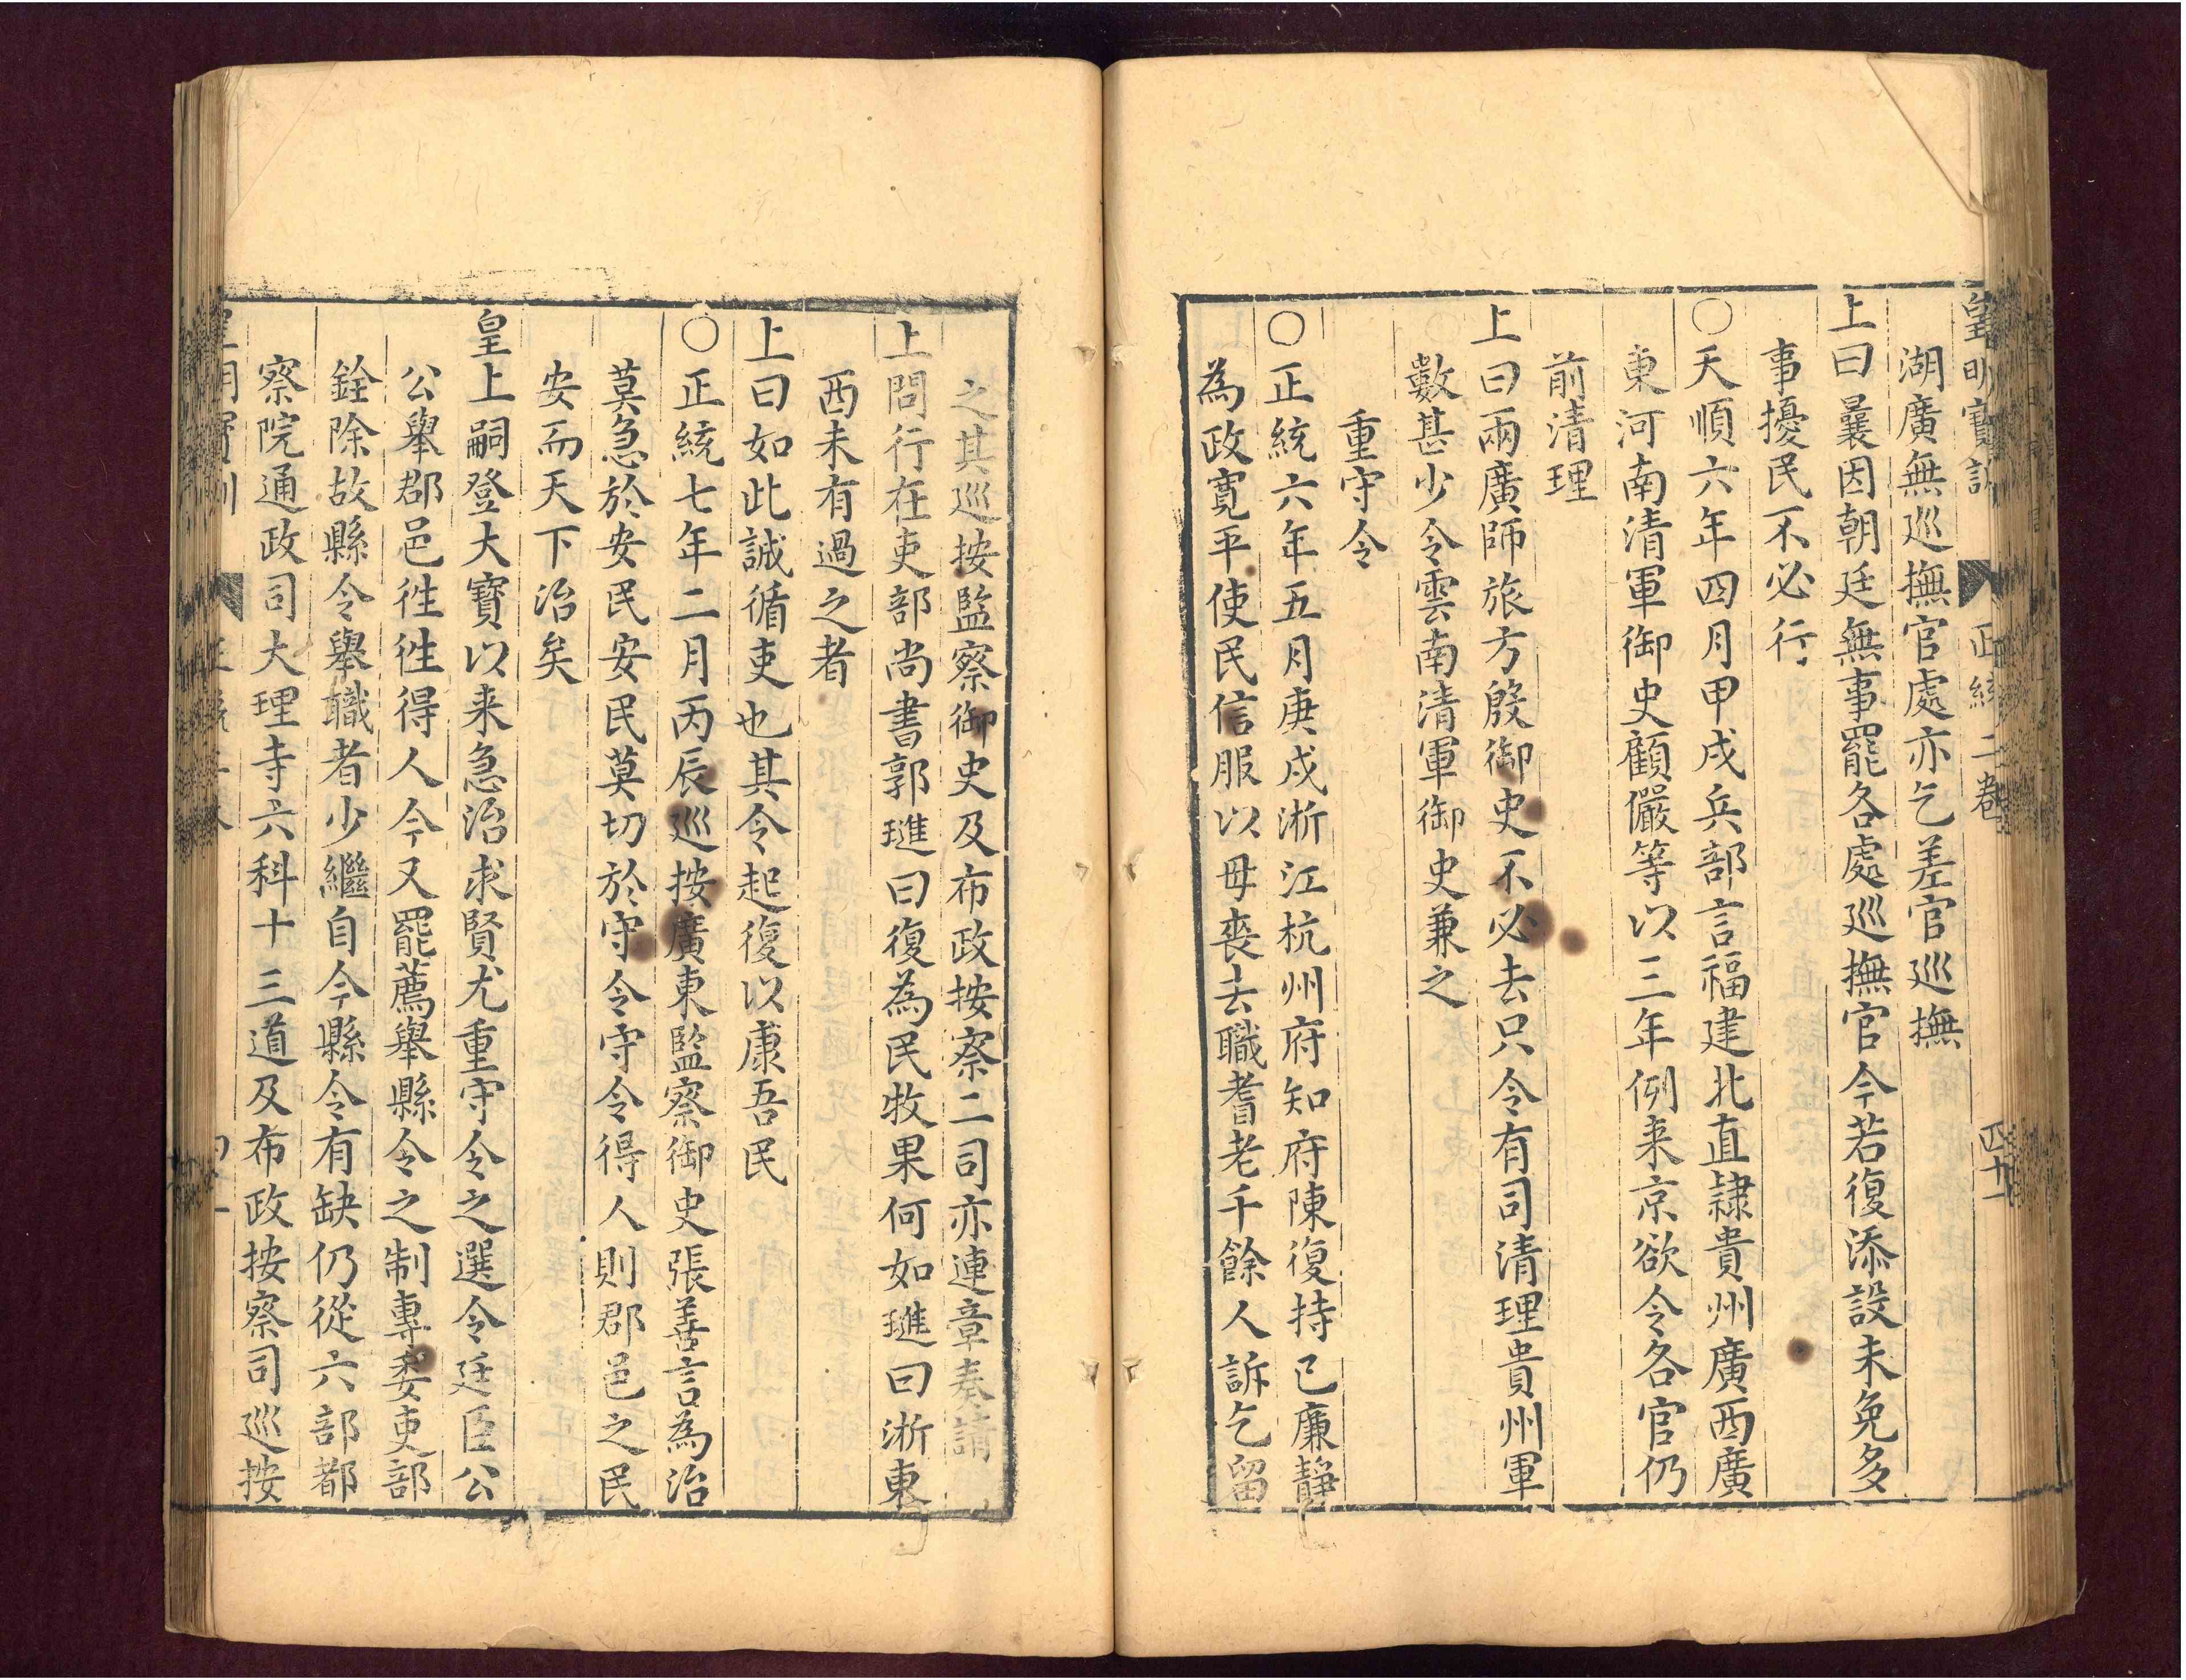 皇明寶訓 正統二卷 四十一
湖廣無巡撫官處亦乞差官巡撫
上曰曩因朝廷無事罷各處巡撫官今若復添設未免多
事擾民不必行
○天順六年四月甲戌兵部言福建北直隷貴州廣西廣
東河南清軍御史顧儼等以三年例来京欲令各官仍
前清理
上曰兩廣師旅方殷御史不必去只令有司清理貴州軍
數甚少令雲南清軍御史兼之
重守令
○正統六年五月庚戌浙江杭州府知府陳復持己廉靜
為政寛平使民信服以母喪去職耆老千餘人訴乞留
之其巡按監察御史及布政按察二司亦連章奏請
上問行在吏部尚書郭璡曰復為民牧果何如璡曰浙東
西未有過之者
上曰如此誠循吏也其令起復以康吾民
○正統七年二月丙辰巡按廣東監察御史張善言為治
莫急於安民安民莫切於守令守令得人則郡邑之民
安而天下治矣
皇上嗣登大寶以来急治求賢尤重守令之選令廷臣公
公舉郡邑徃徃得人今又罷薦舉縣令之制專委吏部
銓除故縣令舉職者少繼自今縣令有缺仍從六部都
察院通政司大理寺六科十三道及布政按察司巡按